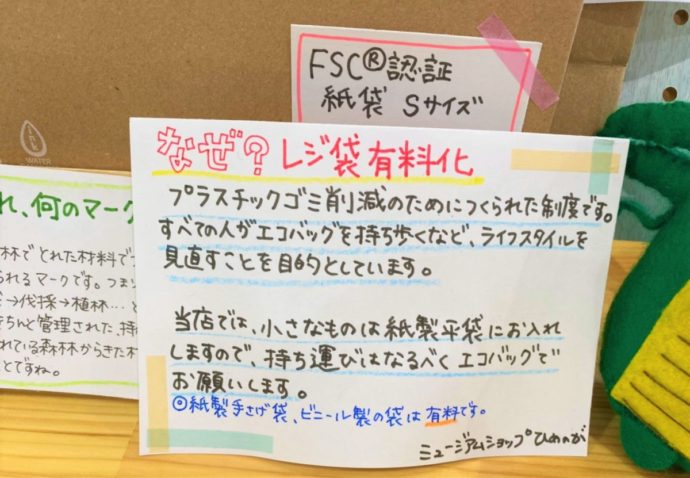 FSC®認証
紙袋 Sサイズ
なぜ?レジ袋有料化
プラスチックゴミ削減のためにつくられた制度です。
すべての人がエコバッグを持ち歩くなど、ライフスタイルを
見直すことを目的としています。
当店では、小さなものは紙製平袋にお入れ
しますので、持ち運びはなるべくエコバッグで
お願いします。
◎紙製手さげ袋、ビニール製の袋は有料です。
ミュージアムショップひめのが
WATER
れ、何のマーク
林でとれた材料で
られるマークです。つま
→伐採→植林…と
ちんと管理された、持
れている森林からきた木
とですね。